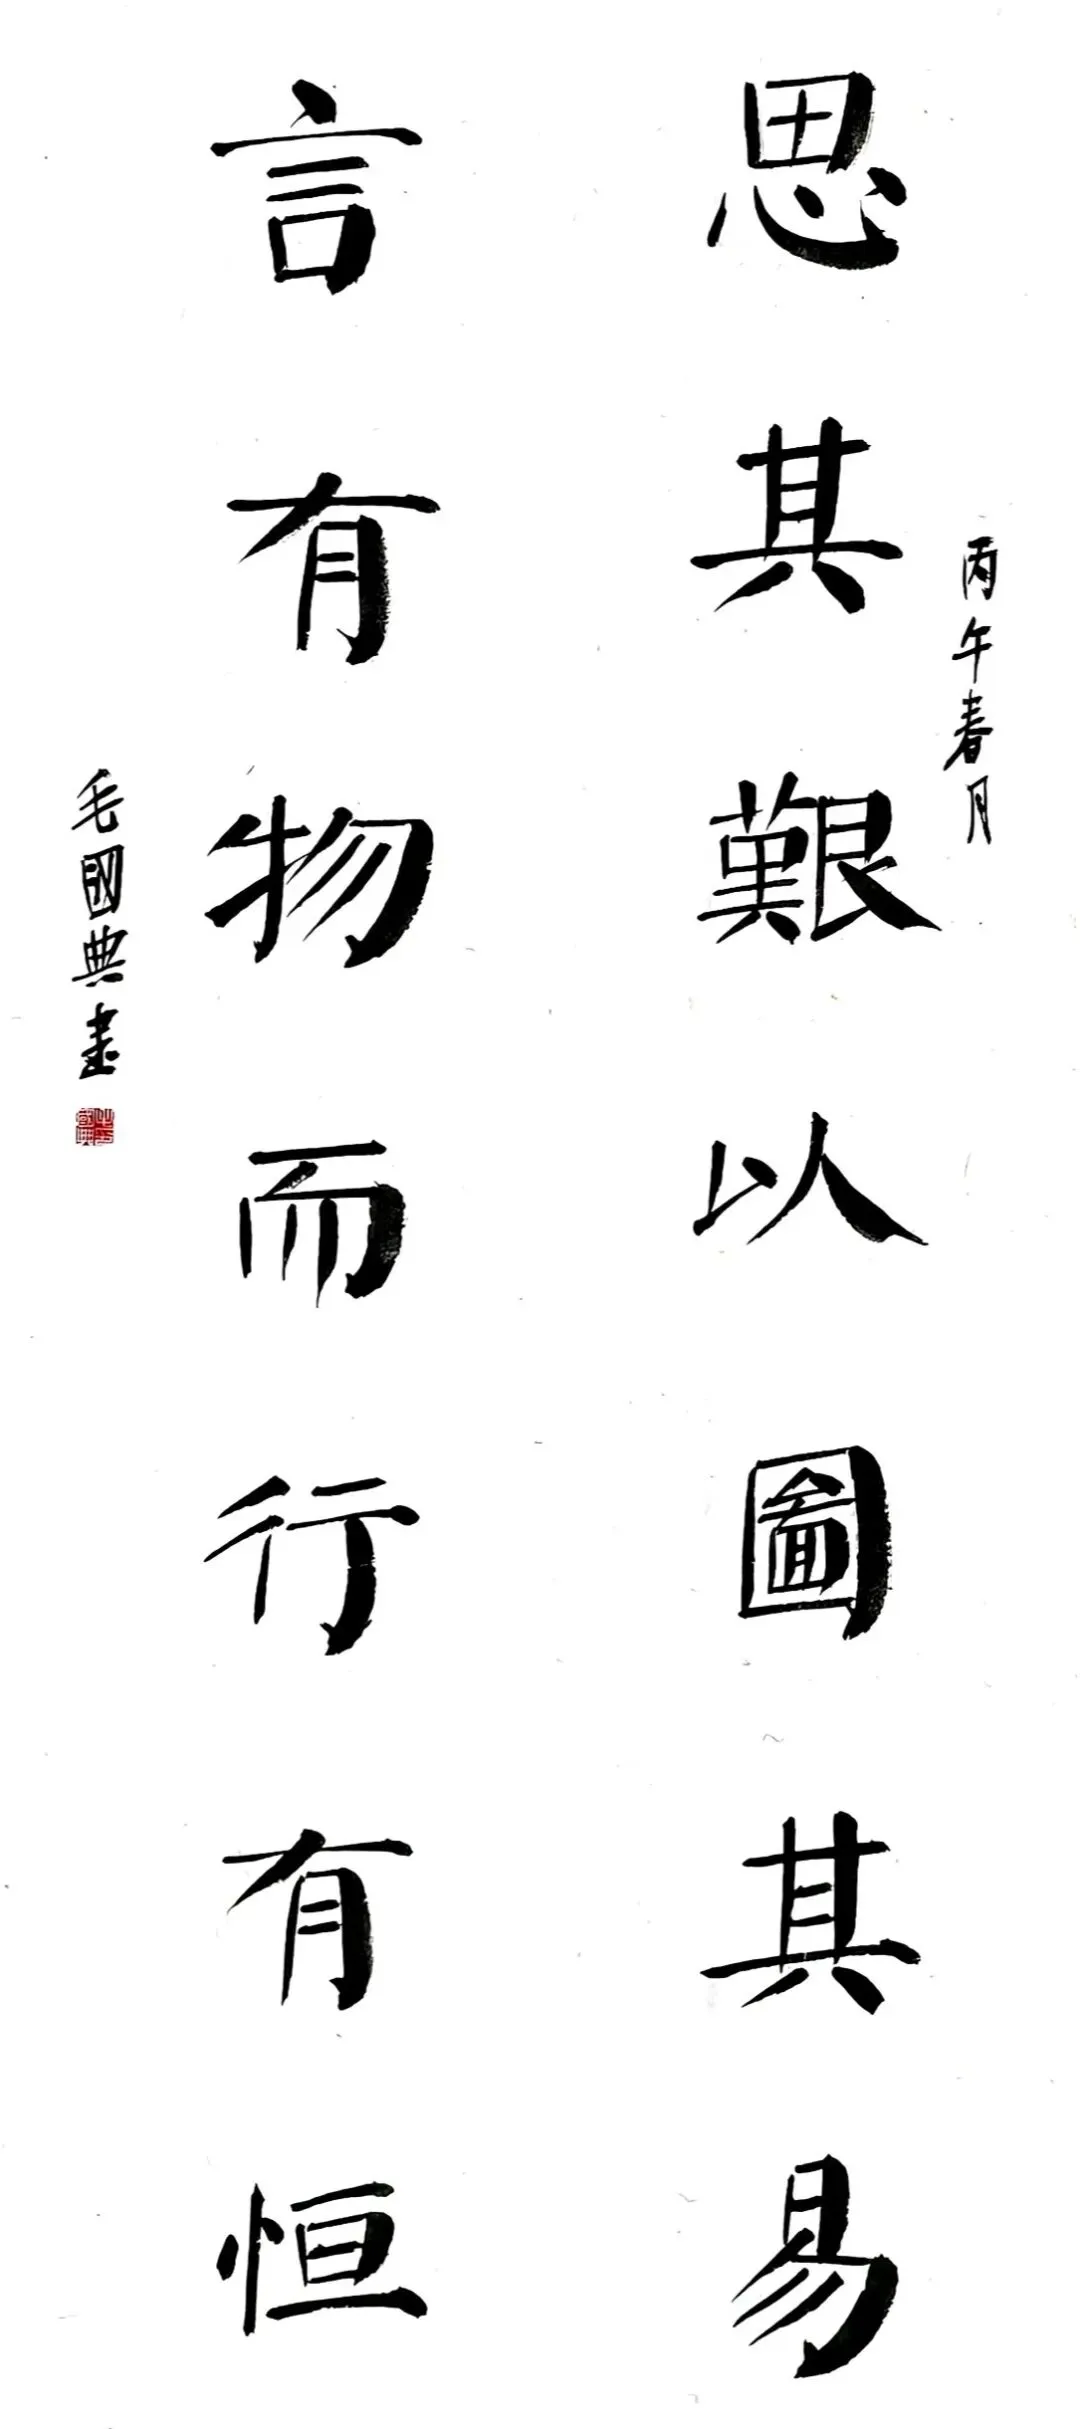 丙午春月
思其艱以圖其易
言有物而行有恒
毛國典書